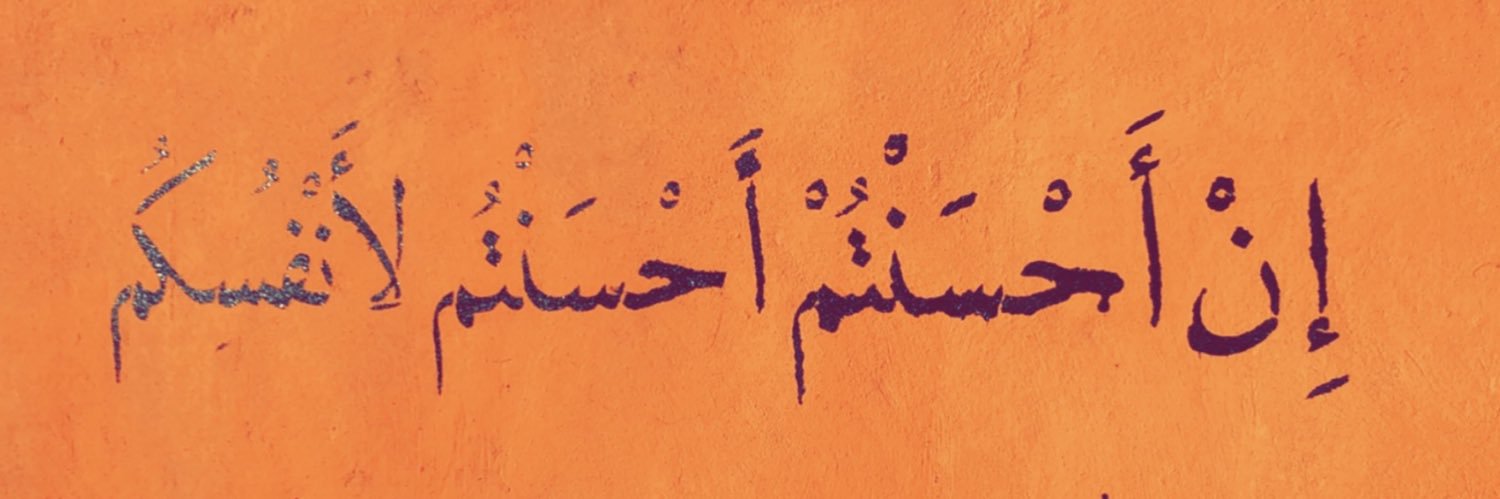 إِنْ أَحْسَنْتُمْ أَحْسَنْتُم لِأَنْفُسِكُم